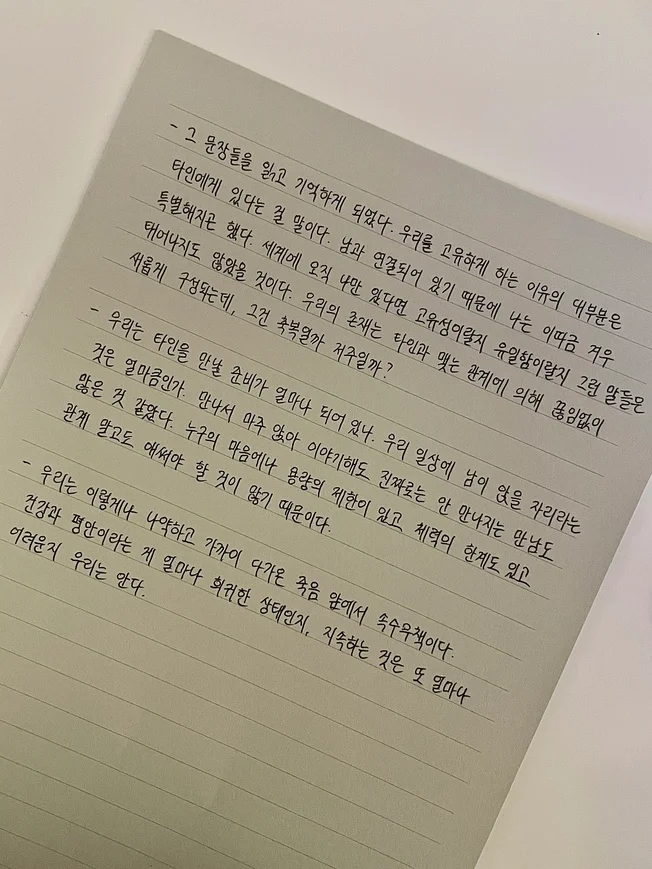 - 그 문장들을 읽고 기억하게 되었다. 우리를 고유하게 하는 이유의 대부분은
타인에게 있다는 걸 말이다. 남과 연결되어 있기 때문에 나는 이따금 겨우
특별해지곤 했다. 세계에 오직 나만 있다면 고유성이랄지 유일함이랄지 그런 말들은
태어나지도 않았을 것이다. 우리의 존재는 타인과 맺는 관계에 의해 끊임없이
새롭게 구성되는데, 그건 축복일까 저주일까?
- 우리는 타인을 만날 준비가 얼마나 되어 있나. 우리 일상에 남이 앉을 자리라는
것은 얼마큼인가. 만나서 마주 앉아 이야기해도 진짜로는 안 만나지는 만남도
많은 것 같았다. 누구의 마음에나 용량의 제한이 있고 체력의 한계도 있고
관계 말고도 애써야 할 것이 많기 때문이다.
- 우리는 이렇게나 나약하고 가까이 다가온 죽음 앞에서 속수무책이다.
건강과 평안이라는 게 얼마나 희귀한 상태인지, 지속하는 것은 또 얼마나
어려운지 우리는 안다.